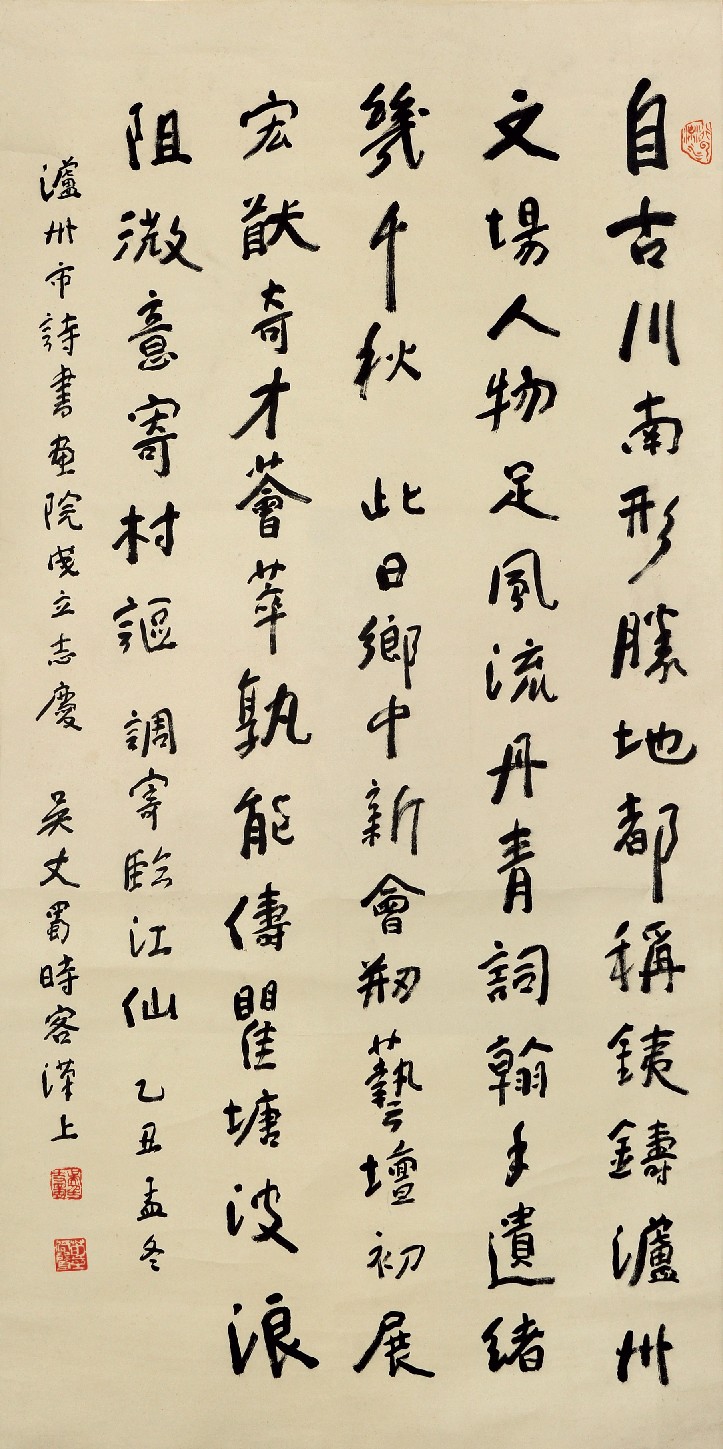 自古川南形勝地都稱銕鑄瀘州
文場人物足風流丹青詞翰手遺緒
幾千秋 此日鄉中新會剏藝壇初展
宏猷奇才薈萃孰能儔瞿塘波浪
阻微意寄村謳 調寄臨江仙 乙丑孟冬
瀘州市詩書畫院成立志慶 吴丈蜀時客漢上